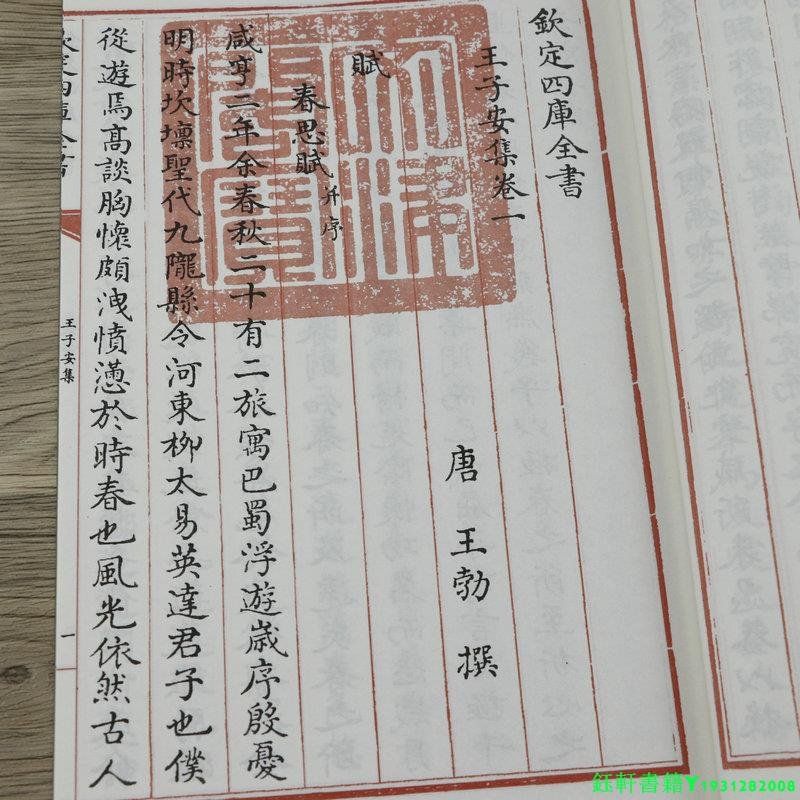 欽定四庫全書
王子安集卷一
唐 王勃 撰
賦
春思賦 并序
咸亨二年余春秋二十有二旅寓巴蜀浮遊歲序殷憂
明時坎壈聖代九隴縣令河東柳太易英達君子也僕
從遊焉高談胸懷頗洩憤懣於時春也風光依然古人
文淵閣寶
欽定四庫全書
王子安集
一
鈺軒書籍Y1931282008